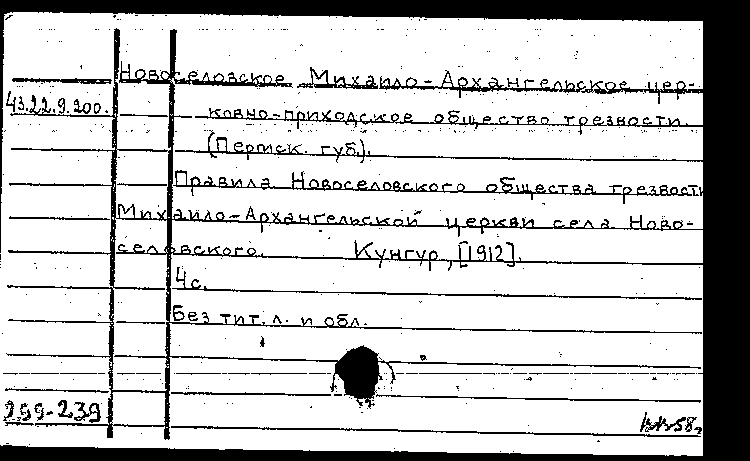 Новоселовское Михаило-Архангельское цер-
43.22.9.200.
ковно-приходское общество трезвости.
(Пермск. губ.).
Правила Новоселовского общества трезвости
Михаило-Архангельской церкви села Ново-
селовского. Кунгур, [1912].
4с.
Без тит. л. и обл.
299-239